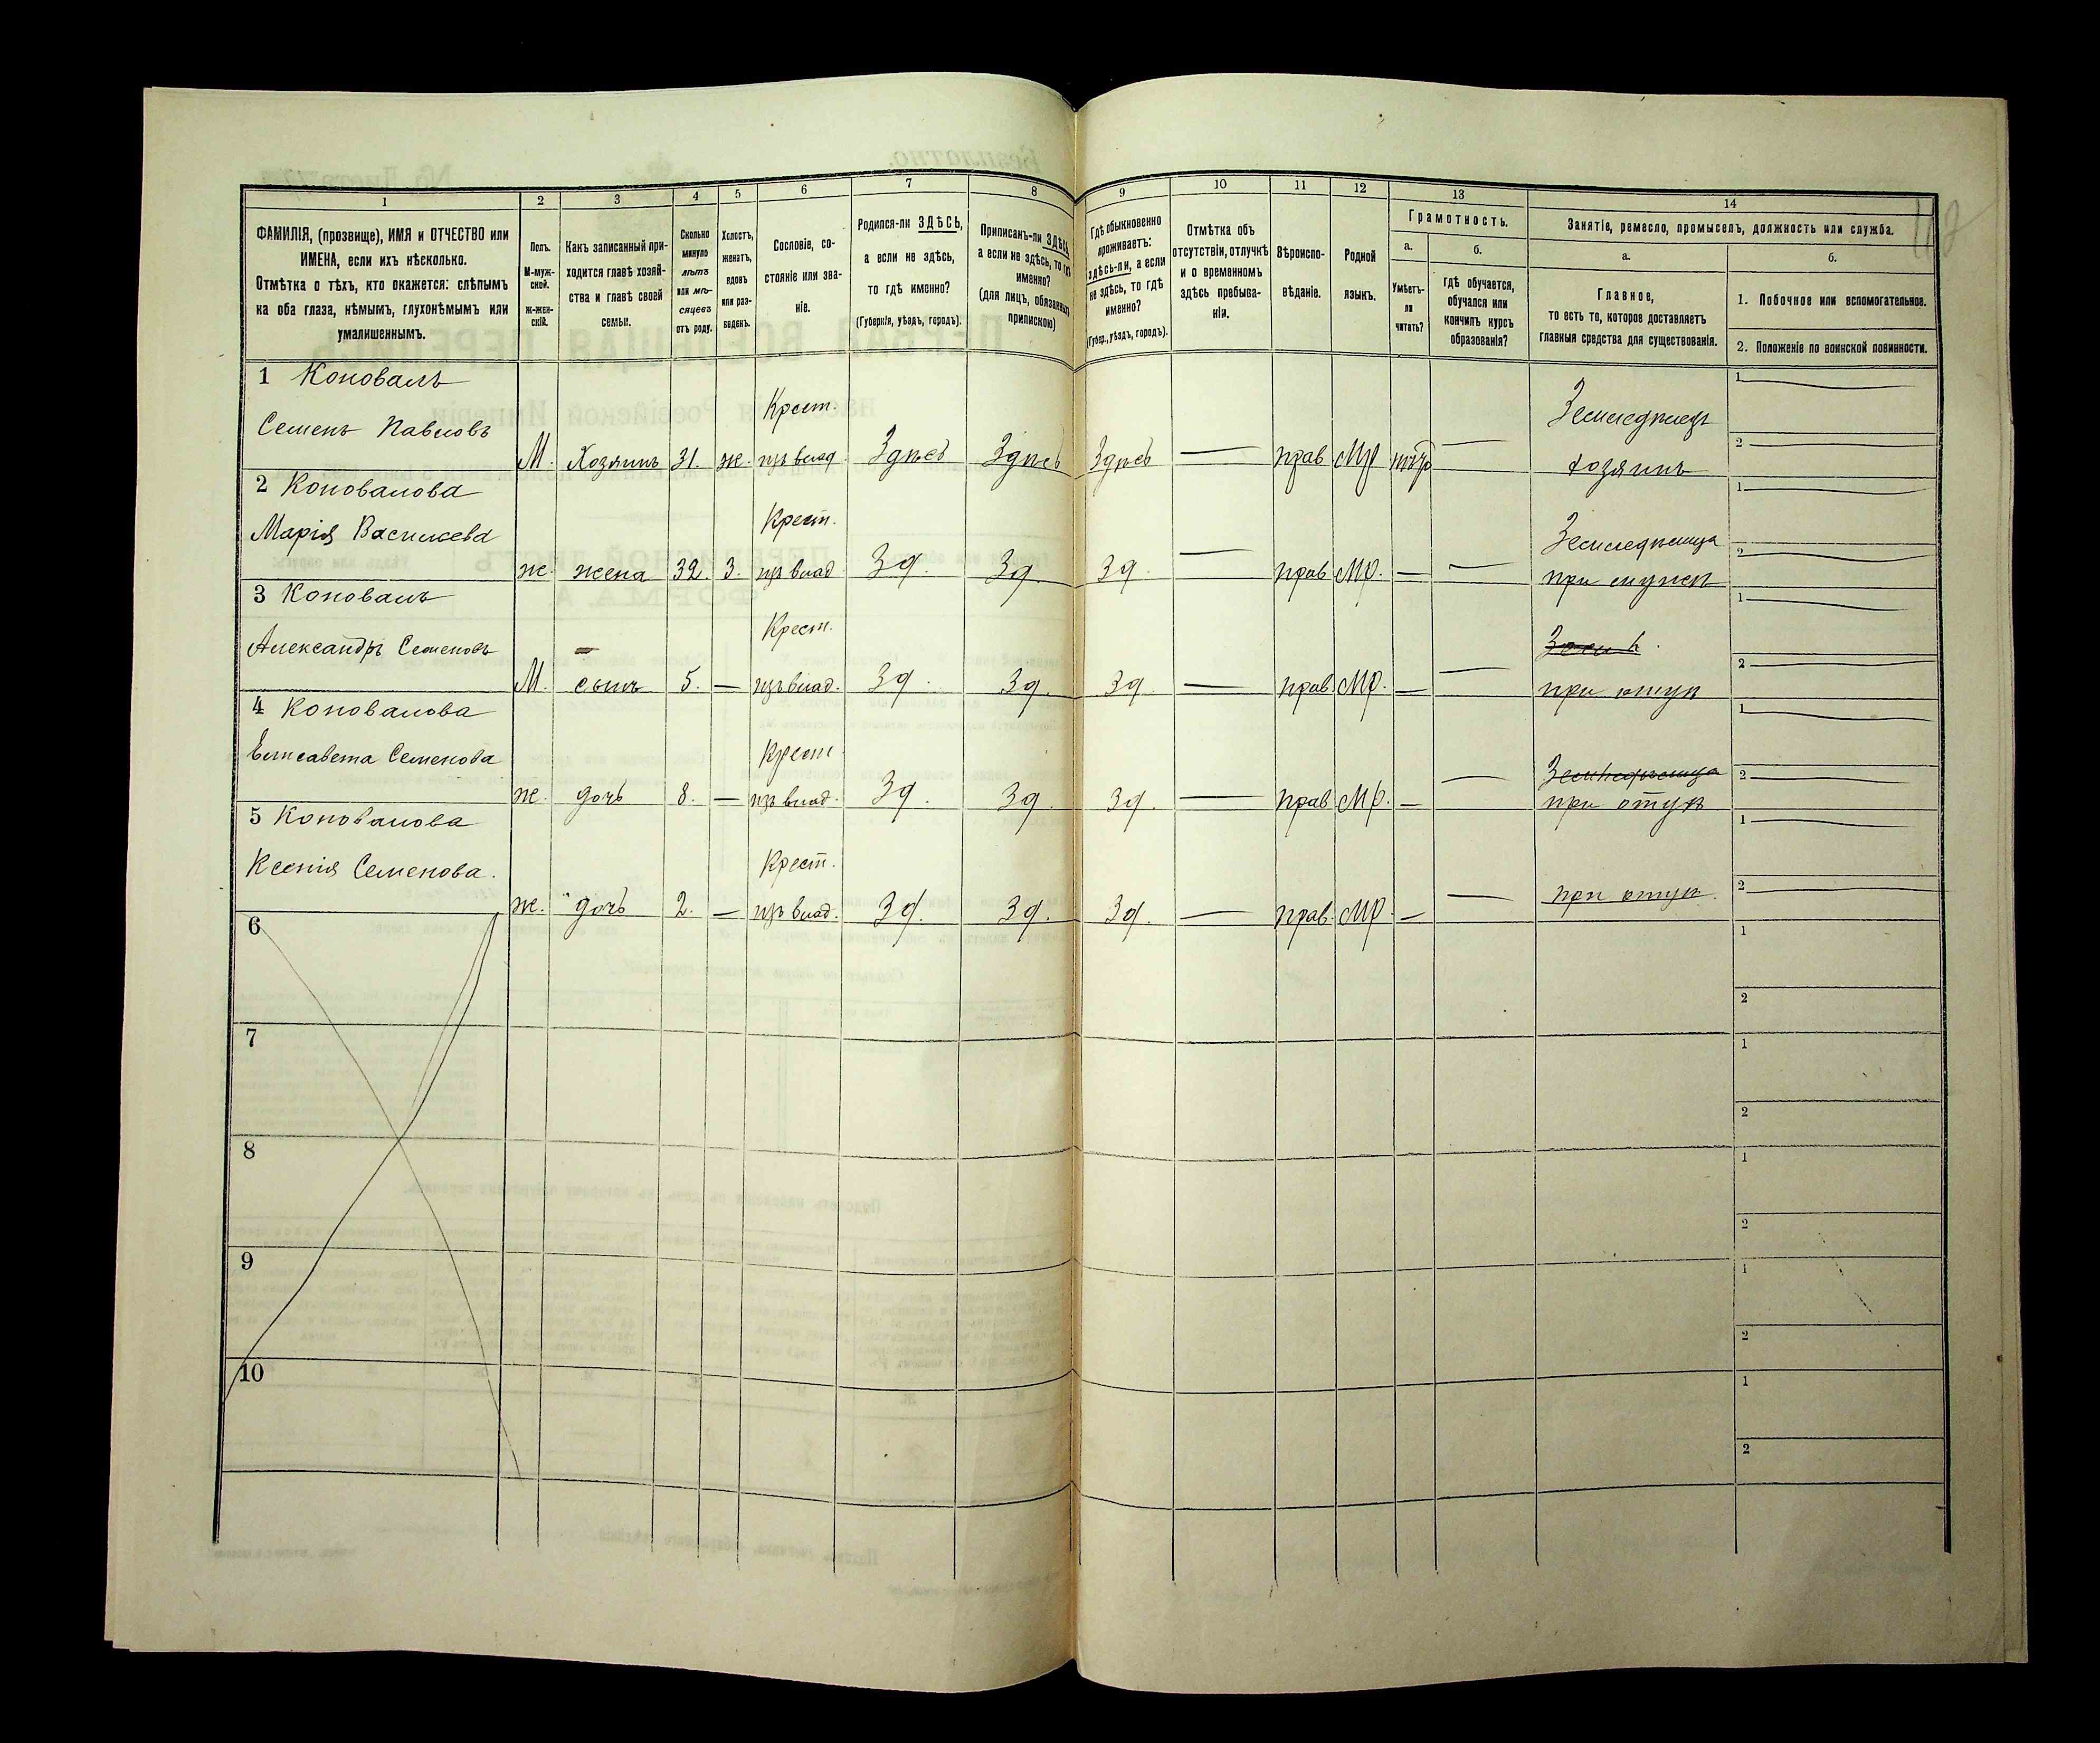 1 2 3 4 5 6 7 8 9 10 11 12 13 14
ФАМИЛІЯ, (прозвище), ИМЯ и ОТЧЕСТВО или
ИМЕНА, если ихъ нѣсколько.
Отмѣтка о тѣхъ, кто окажется: слѣпымъ
на оба глаза, нѣмымъ, глухонѣмымъ или
умалишеннымъ.
Полъ.
М-муж-
ской.
Ж-жен-
скій.
Какъ записанный при-
ходится главѣ хозяй-
ства и главѣ своей
семьи.
Сколько
минуло
лѣтъ
или мѣ-
сяцевъ
отъ роду.
Холостъ,
женатъ,
вдовъ
или раз-
веденъ.
Сословіе, со-
стояніе или зва-
ніе.
Родился-ли ЗДѢСЬ,
а если не здѣсь,
то гдѣ именно?
(Губернія, уѣздъ, городъ).
Приписанъ-ли ЗДѢСЬ,
а если не здѣсь, то гдѣ
именно?
(для лицъ, обязанныхъ
припискою)
Гдѣ обыкновенно
проживаетъ:
здѣсь-ли, а если
не здѣсь, то гдѣ
именно?
(Губер., уѣздъ, городъ).
Отмѣтка объ
отсутствіи, отлучкѣ
и о временномъ
здѣсь пребыва-
ніи.
Вѣроиспо-
вѣданіе.
Родной
языкъ.
Грамотность.
а.
Умѣетъ-
ли
читать?
б.
Гдѣ обучается,
обучался или
кончилъ курсъ
образованія?
Занятіе, ремесло, промыселъ, должность или служба.
а.
Главное,
то есть то, которое доставляетъ
главныя средства для существованія.
б.
1. Побочное или вспомогательное.
2. Положеніе по воинской повинности.
1 Коновалъ
Семенъ Павловъ
М. Хозяинъ 31. ж. Крест. изъ влад. Здѣсь Здѣсь Здѣсь — прав. Мр. — Земледѣлецъ хозяинъ 1 2
2 Коновалова
Марія Васильева
ж. жена 32. З. Крест. изъ влад. Зд. Зд. Зд. — прав. Мр. — — Земледѣлица при мужѣ 1 2
3 Коновалъ
Александръ Семеновъ
М. сынъ 5. — Крест. изъ влад. Зд. Зд. Зд. — прав. Мр. — — при отцѣ 1 2
4 Коновалова
Елисавета Семенова
ж. дочь 8. — Крест. изъ влад. Зд. Зд. Зд. — прав. Мр. — — Земледѣлица при отцѣ 1 2
5 Коновалова
Ксенія Семенова.
ж. дочь 2. — Крест. изъ влад. Зд. Зд. Зд. — прав. Мр. — — при отцѣ. 1 2
6 1 2
7 1 2
8 1 2
9 1 2
10 1 2